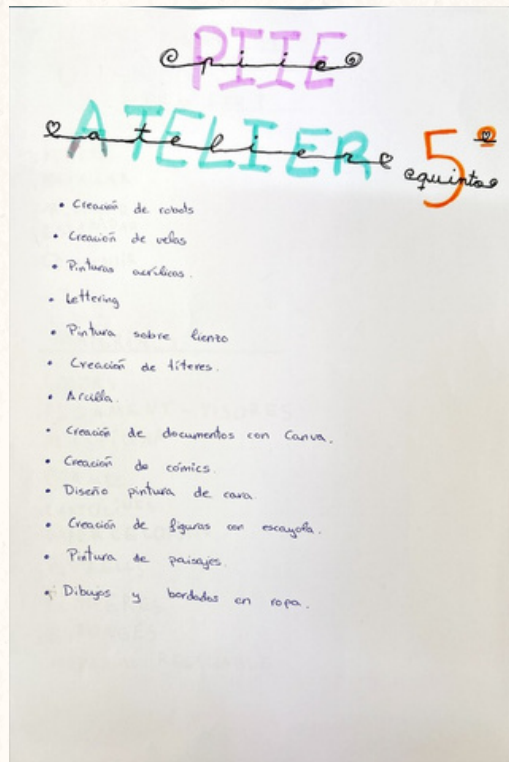 PIIE
piie
ATELIER
atelier
5º
quinto
• Creación de robots
• Creación de velas
• Pinturas acrílicas.
• Lettering
• Pintura sobre lienzo
• Creación de títeres.
• Arcilla.
• Creación de documentos con Canva.
• Creación de cómics.
• Diseño pintura de cara.
• Creación de figuras con escayola.
• Pintura de paisajes.
• Dibujos y bordados en ropa.